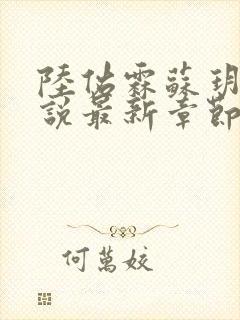 陸佔霖蘇玥
說最新章節
何萬姣